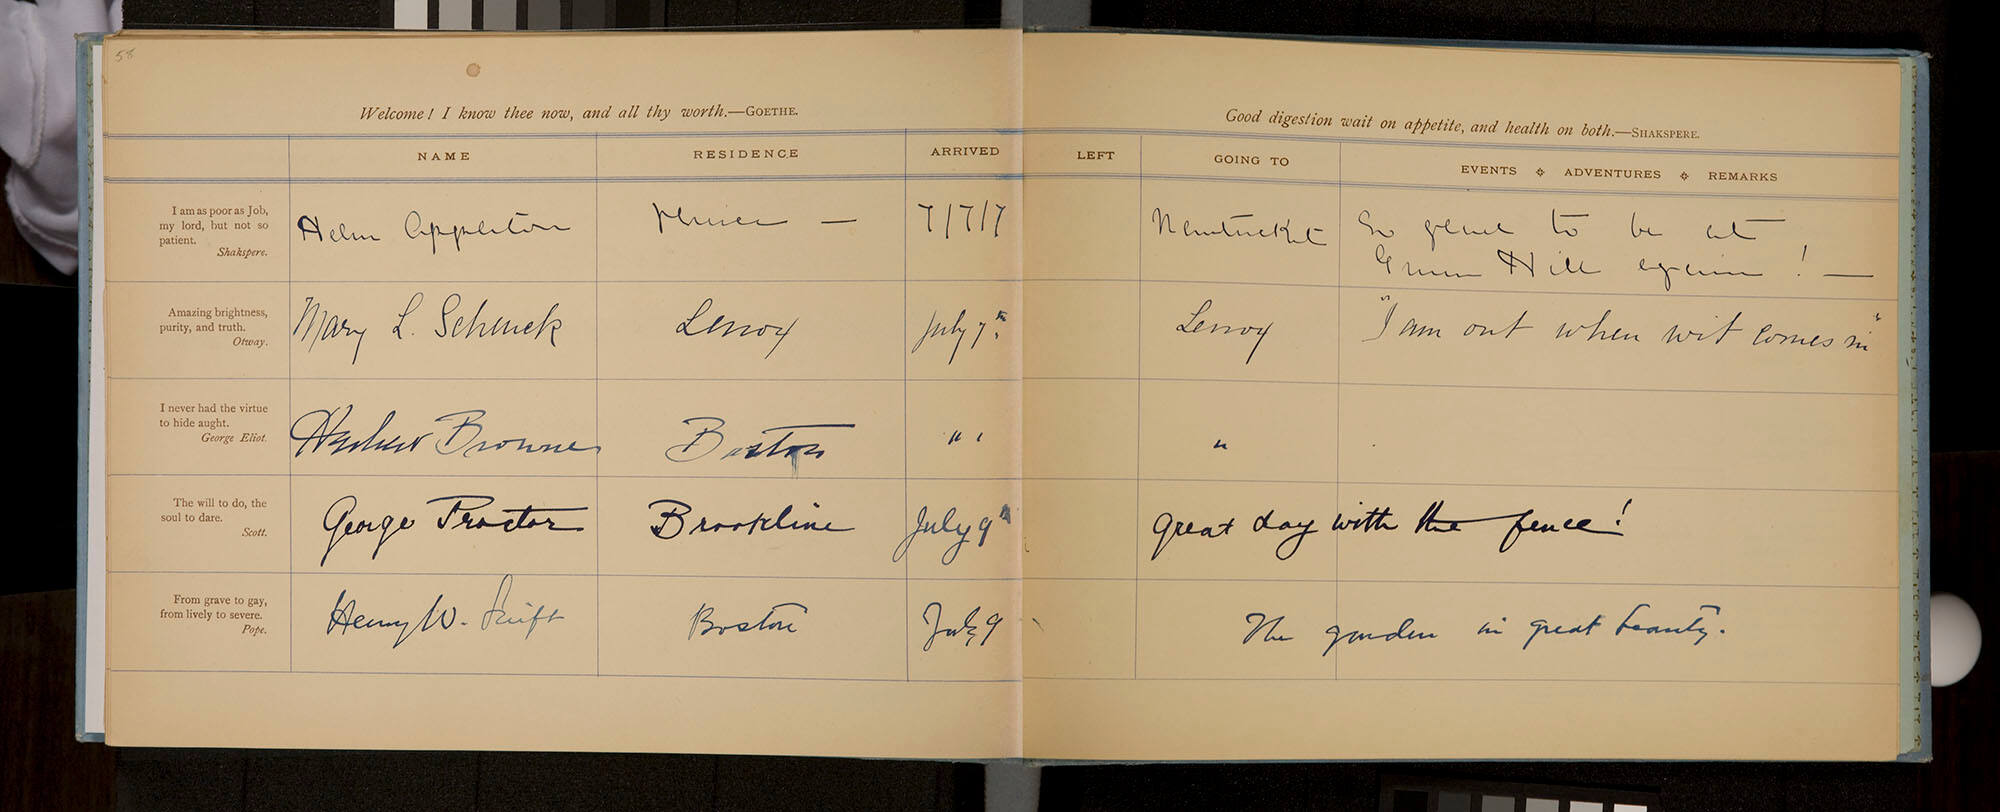 58
Welcome! I know thee now, and all thy worth.—GOETHE.
Good digestion wait on appetite, and health on both.—SHAKSPERE.
NAME RESIDENCE ARRIVED LEFT GOING TO EVENTS ADVENTURES REMARKS
I am as poor as Job,
my lord, but not so
patient.
Shakspere.
Helen Appleton Venice — 7/7/7 Nantucket So glad to be at
Green Hill again! —
Amazing brightness,
purity, and truth.
Otway.
Mary L. Schenck Lenox July 7th. Lenox "I am out when wit comes in"
I never had the virtue
to hide aught.
George Eliot.
Herbert Browne Boston " " "
The will to do, the
soul to dare.
Scott.
George Proctor Brookline July 9th great day with the fence!
From grave to gay,
from lively to severe.
Pope.
Henry W. Swift Boston July 9 The garden in great beauty.